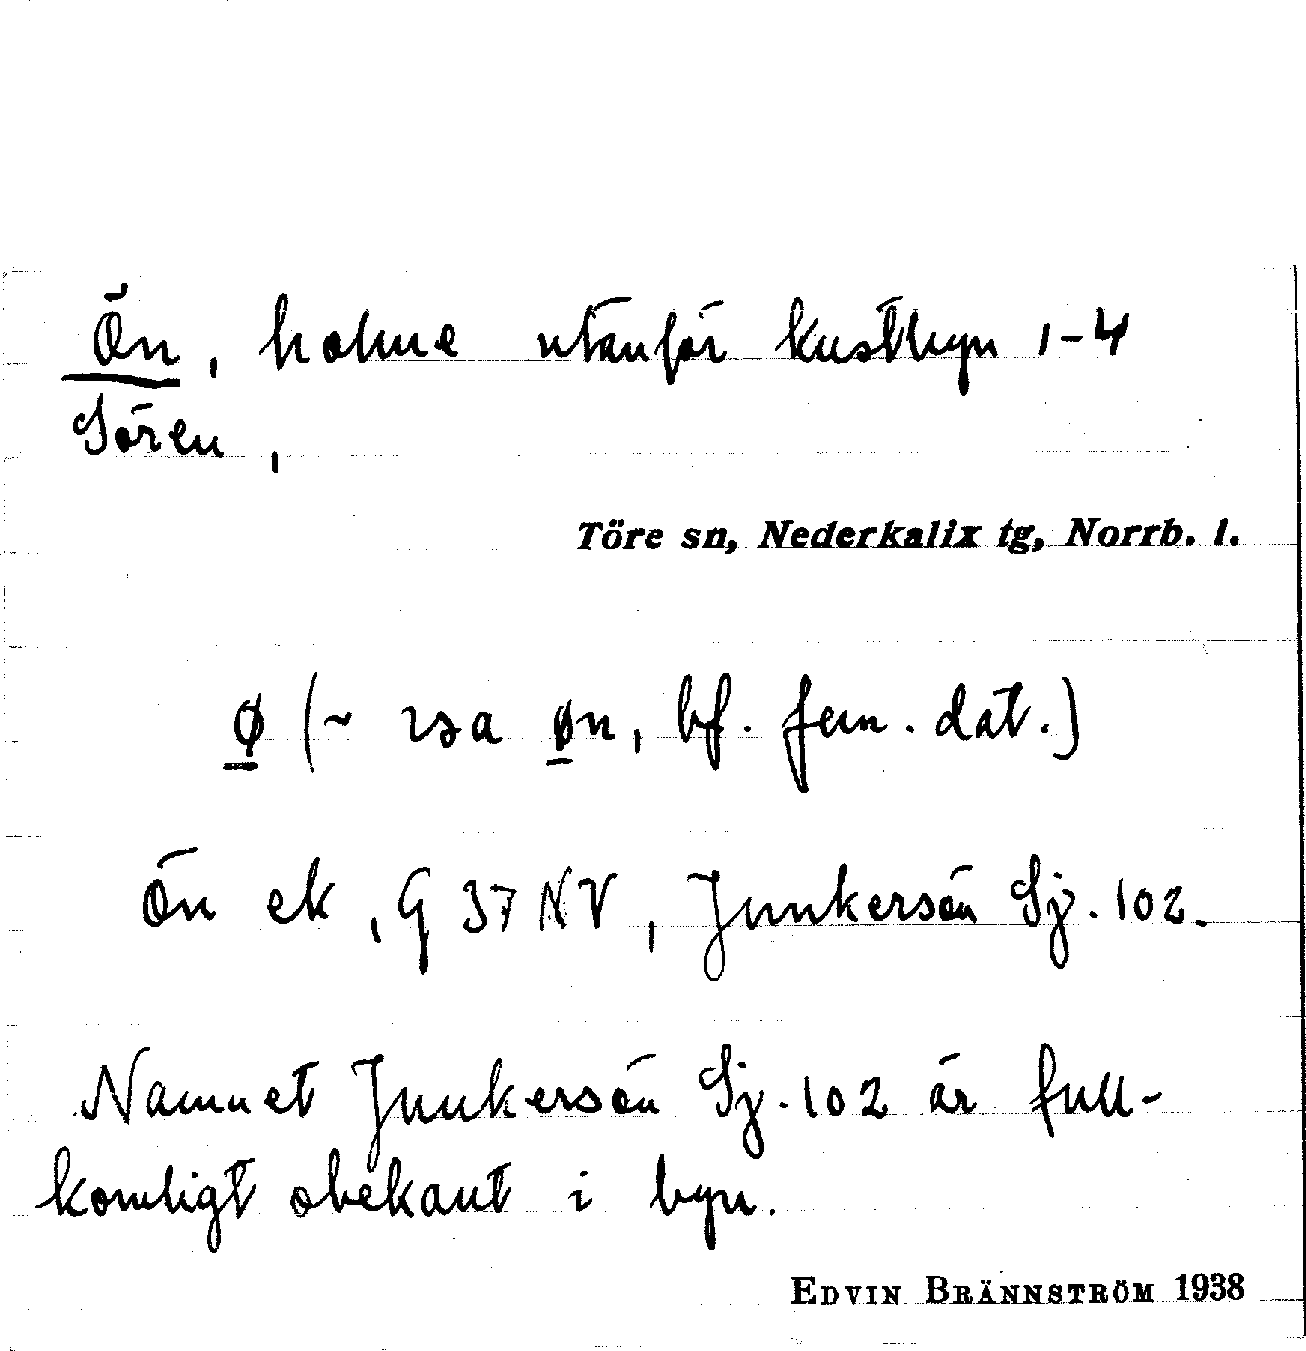 Ön, holme utanför kustbyn 1-4
Sören,
Töre sn, Nederkalix tg, Norrb. l.
ø (~ øn, bf. fem. dat.)
Ön ek, G 37 NV, Junkersön Sj. 102.
Namnet Junkersön Sj. 102 är full-
komligt obekant i byn.
EDVIN BRÄNNSTRÖM 1938